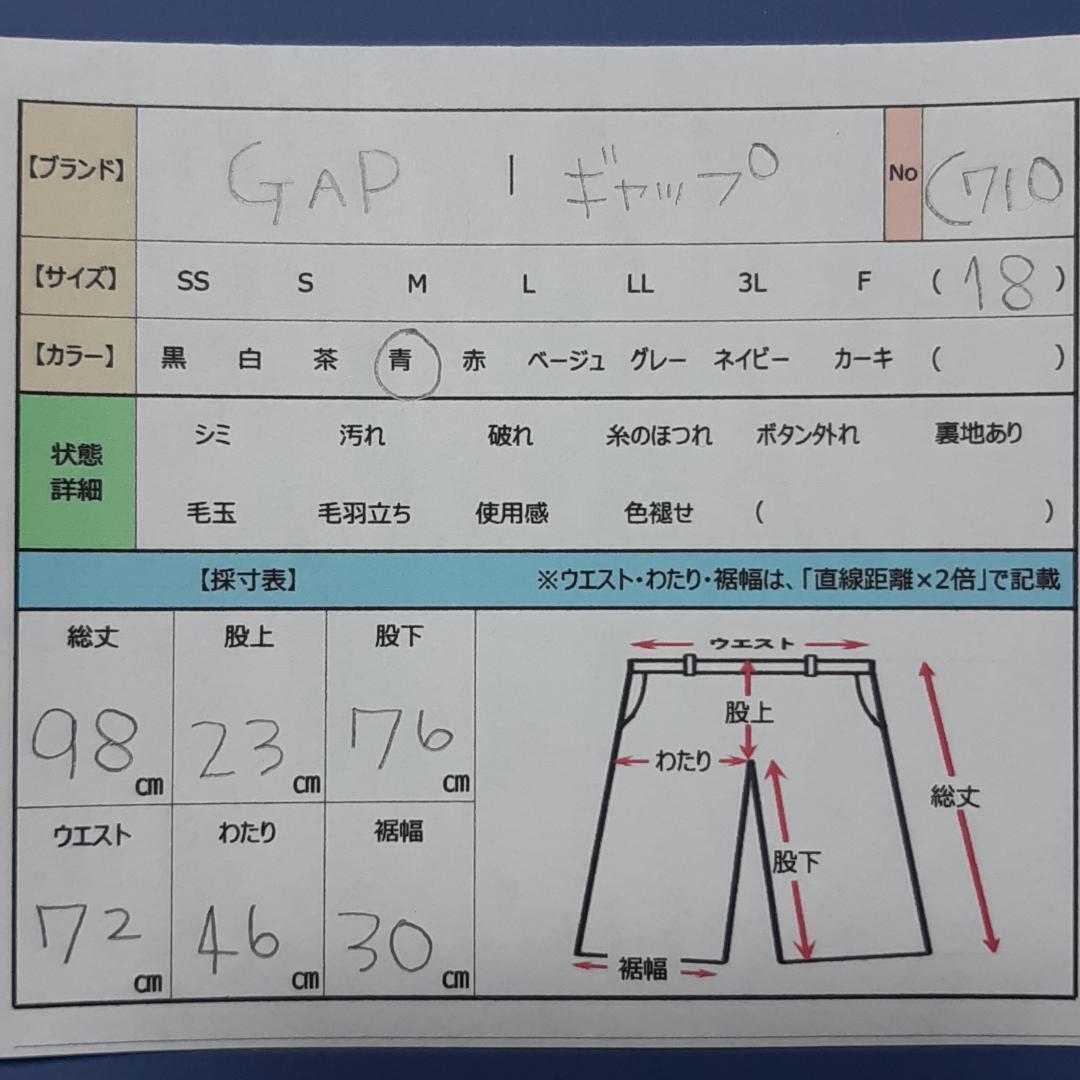 【ブランド】 GAP | ギャップ No C710
【サイズ】 SS S M L LL 3L F ( 18 )
【カラー】 黒 白 茶 青 赤 ベージュ グレー ネイビー カーキ ( )
状態
詳細
シミ 汚れ 破れ 糸のほつれ ボタン外れ 裏地あり
毛玉 毛羽立ち 使用感 色褪せ ( )
【採寸表】 ※ウエスト・わたり・裾幅は、「直線距離×2倍」で記載
総丈 股上 股下
98 ㎝ 23 ㎝ 76 ㎝
ウエスト わたり 裾幅
72 ㎝ 46 ㎝ 30 ㎝
ウエスト
股上
わたり
総丈
股下
裾幅